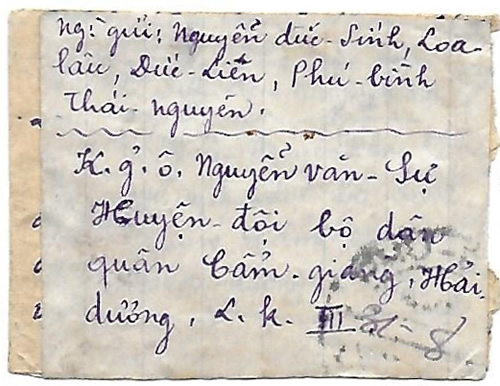 Ng: gửi: Nguyễn đức-Sính, Loa-
lâu, Đức-Liên, Phú-bình
Thái-nguyên.
K.g. ô. Nguyễn văn-Sự
Huyện-đội bộ dân
quân Cẩm-giàng, Hải-
dương, L.k. III